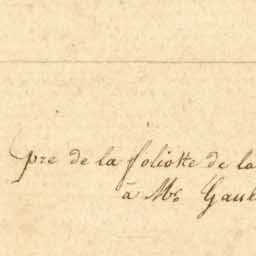 pre de la foliotte de la
à Mr Gaul